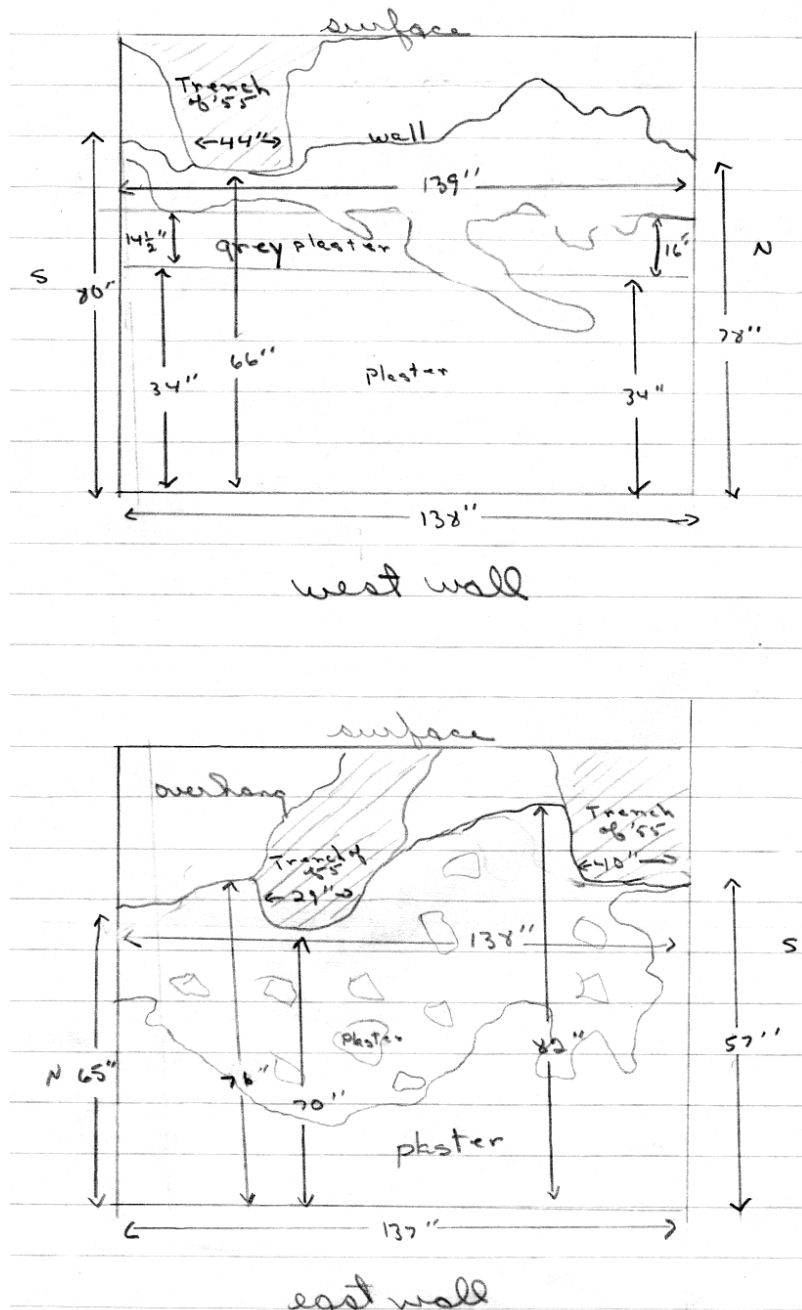 surface
Trench
of '55
44"
wall
139"
14½"
grey plaster
16"
S
80"
N
66"
78"
34"
plaster
34"
138"
west wall
surface
overhang
Trench
of '55
Trench of
'55
40"
29"
138"
S
plaster
82"
57"
N 65"
76"
70"
plaster
137"
east wall